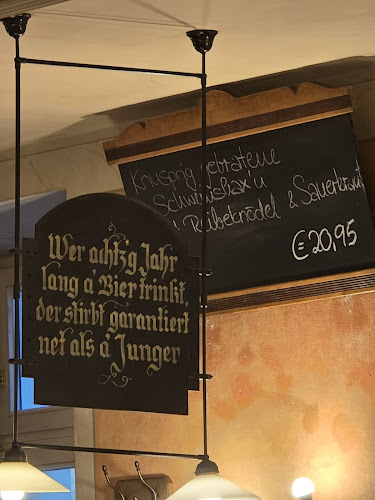 Wer achtz'g Jahr
lang a' Bier trinkt,
der stirbt garantiert
net als a' Junger
Knusprig gebratene
Schweinshax'n
Reibeknödel & Sauerkraut
€ 20,95